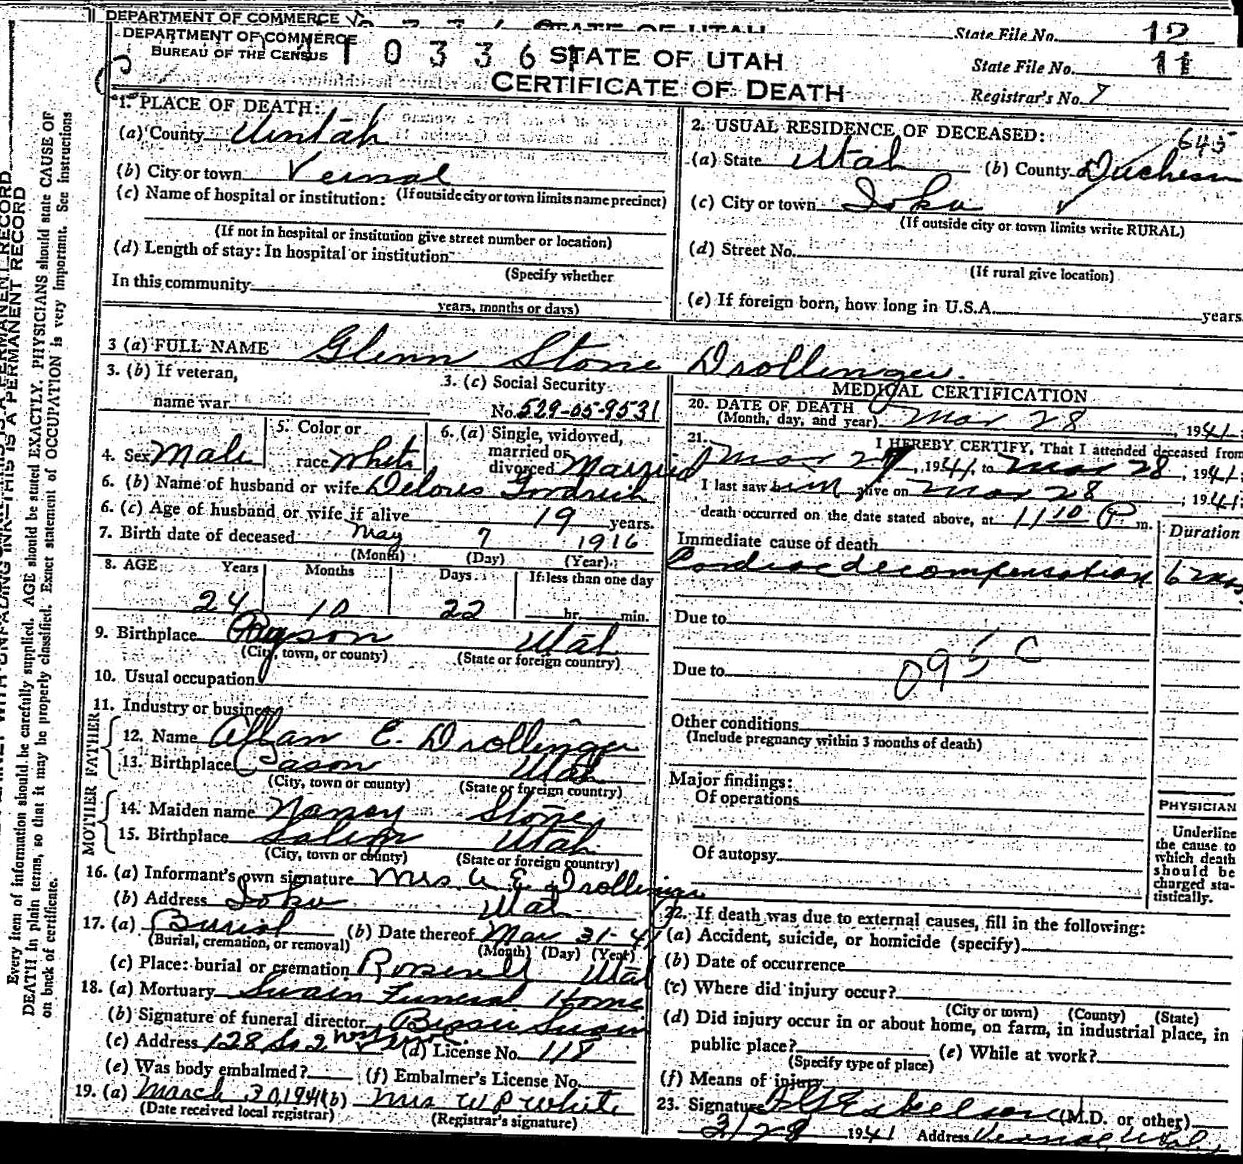 DEPARTMENT OF COMMERCE
STATE OF UTAH
State File No. 12
DEPARTMENT OF COMMERCE
BUREAU OF THE CENSUS
1 0 3 3 6 1
STATE OF UTAH
State File No. 11
CERTIFICATE OF DEATH
Registrar's No. 7
1. PLACE OF DEATH:
(a) County Uintah
(b) City or town Vernal
(c) Name of hospital or institution: (If outside city or town limits name precinct)
(If not in hospital or institution give street number or location)
(d) Length of stay: In hospital or institution
(Specify whether
In this community
years, months or days)
2. USUAL RESIDENCE OF DECEASED: 645
(a) State Utah (b) County Duchesne
(c) City or town Ioka
(If outside city or town limits write RURAL)
(d) Street No.
(If rural give location)
(e) If foreign born, how long in U.S.A. years.
3 (a) FULL NAME Glenn Stone Drollinger.
3. (b) If veteran,
name war
3. (c) Social Security
No. 529-05-9531
4. Sex Male
5. Color or
race White
6. (a) Single, widowed,
married or
divorced Married
6. (b) Name of husband or wife Delores Goodrich
6. (c) Age of husband or wife if alive 19 years.
7. Birth date of deceased May 7 1916
(Month) (Day) (Year)
8. AGE Years Months Days If less than one day
24 10 22 hr. min.
9. Birthplace Payson Utah
(City, town, or county) (State or foreign country)
10. Usual occupation
11. Industry or business
FATHER
12. Name Allan E. Drollinger
13. Birthplace Utah
(City, town or county) (State or foreign country)
MOTHER
14. Maiden name Nancy Stone
15. Birthplace Salem Utah
(City, town or county) (State or foreign country)
16. (a) Informant's own signature Mrs A E Drollinger
(b) Address Ioka Utah
17. (a) Burial (b) Date thereof Mar 31-41
(Burial, cremation, or removal) (Month) (Day) (Year)
(c) Place: burial or cremation Utah
18. (a) Mortuary Swain Funeral Home
(b) Signature of funeral director Bessie Swain
(c) Address 128 So 2 West (d) License No. 118
(e) Was body embalmed? (f) Embalmer's License No.
19. (a) March 30, 1941 (b) Mrs W P White
(Date received local registrar) (Registrar's signature)
MEDICAL CERTIFICATION
20. DATE OF DEATH
(Month, day, and year) Mar 28, 1941.
21. I HEREBY CERTIFY, That I attended deceased from
Mar 27, 1941, to Mar 28, 1941.
I last saw him alive on Mar 28; 1941.
death occurred on the date stated above, at 11 10 P m.
Immediate cause of death
Duration
Cardiac decompensation 6 mos.
Due to
Due to
095 C
Other conditions
(Include pregnancy within 3 months of death)
Major findings:
Of operations
Of autopsy
PHYSICIAN
Underline
the cause to
which death
should be
charged sta-
tistically.
22. If death was due to external causes, fill in the following:
(a) Accident, suicide, or homicide (specify)
(b) Date of occurrence
(c) Where did injury occur?
(City or town) (County) (State)
(d) Did injury occur in or about home, on farm, in industrial place, in
public place? (e) While at work?
(Specify type of place)
(f) Means of injury
23. Signature (M.D. or other)
3/28 1941 Address Vernal, Utah
Every item of information should be carefully supplied. AGE should be stated EXACTLY. PHYSICIANS should state CAUSE OF
DEATH in plain terms, so that it may be properly classified. Exact statement of OCCUPATION is very important. See instructions
on back of certificate.
THIS IS A PERMANENT RECORD